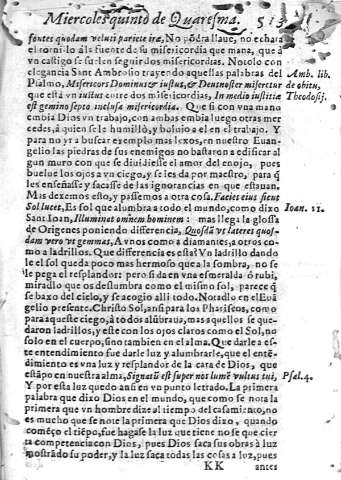 Miercoles quinto de Quaresma. 513
fontes quodam veluti pariete ira, No põdra llaue, no echara
el torniλlo a la fuente de su misericordia que mana, que à
vn castigo se suelen seguir dos misericordias. Notolo con
elegancia Sant Ambrosio trayendo aquellas palabras del
Psalmo, Misericors Dominus & iustus, & Deus noster miseretur
que està vn iustus entre dos misericordias, In medio iustitie
est gemino septo inclusa misericordia. Que si con vna mano
embia Dios vn trabajo, con ambas embia luego otras mer
cedes, à quien se le humillò, y boluio a el en el trabajo. Y
para no yr a buscar exemplo mas lexos, en nuestro Euan-
gelio las piedras de sus enemigos no bastaron a edificar al
gun muro con que se diuidiesse el amor del enojo, pues
buelue los ojos a vn ciego, y se les da por maestro, para q̃
les enseñasse y sacasse de las ignorancias en que estauan.
Mas dexemos esto, y passemos a otra cosa. Facies eius sicut
Sol lucet, Es sol que alumbra a todo el mundo, como dixo
Sant Iuan, Illuminat omnem hominem: mas llega la glossa
de Origenes poniendo differencia, Quosdã vt lateres quos-
dam vero vt gemmas, A vnos como a diamantes, a otros co-
mo a ladrillos. Que differencia es esta? Vn ladrillo dando
le el sol queda poco mas hermoso que a la sombra, no se
le pega el resplandor: pero si da en vna esmeralda ó rubi,
miradlo que os deslumbra como el mismo sol, parece q̃
se baxo del cielo, y se acogio alli todo. Notadlo en el Euã
gelio presente. Christo Sol, ansi para los Phariseos, como
para aqueste ciego, à todos alũbraua, mas aquellos se que-
daron ladrillos, y este con los ojos claros como el Sol, no
solo en el cuerpo, sino tambien en el alma. Que darle a es-
te entendimiento fue darle luz y alumbrarle, que el entẽ-
dimiento es vna luz y resplandor de la cara de Dios, que
estãpo en nuestra alma, Signatũ est super nos lumẽ vultus tui,
Y por esta luz quedo ansi en vn punto letrado. La primera
palabra que dixo Dios en el mundo, que como se nota la
primera que vn hombre dize al tiempo del casamiẽto, no
es mucho que se note la primera que Dios dixo, quando
comẽço el tiẽpo, fue hagase la luz que tiene no se que cier
ta competencia con Dios, pues Dios saca sus obras à luz
mostrãdo su poder, y la luz saca todas las cosas a luz, pues
KK antes
Amb. lib.
de obitu,
Theodosij.
Ioan. 11.
Psal. 4.